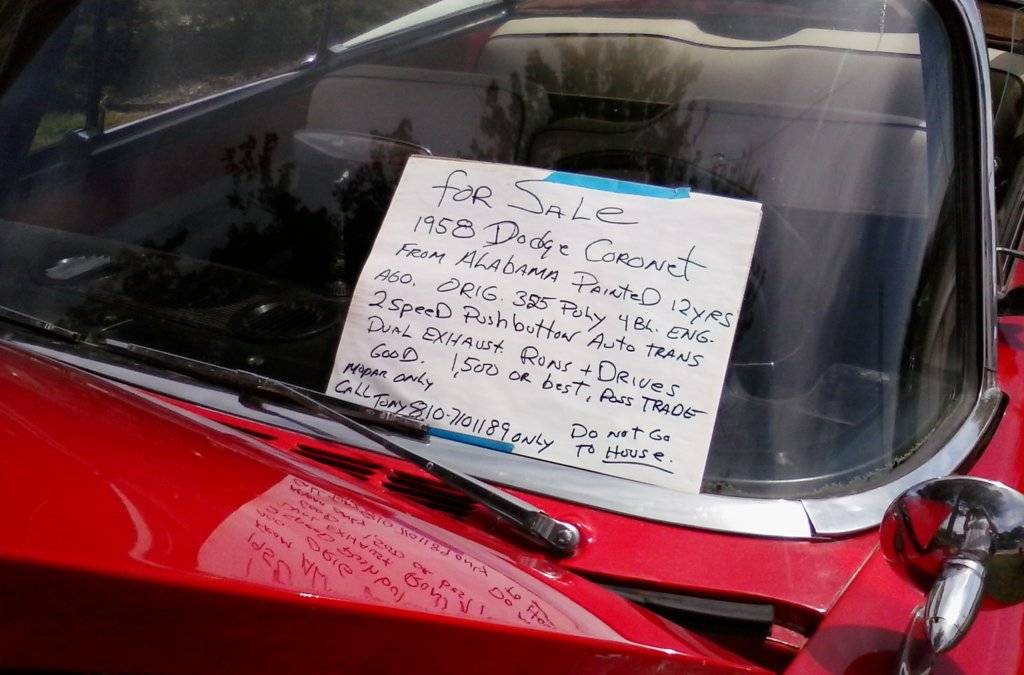 for SaLe
1958 Dodge CoroNet
From ALABAMA PaintED 12yrs
AGO. ORIG. 325 Poly 4BL. ENG.
2 SpeeD Pushbutton Auto TRANS
DUAL EXHAUST. RUNS + DRIVES
GooD. 1,500 OR best, Poss TRADE
Mopar only
CALL Tony 810-7101189 only Do not Go
To House.